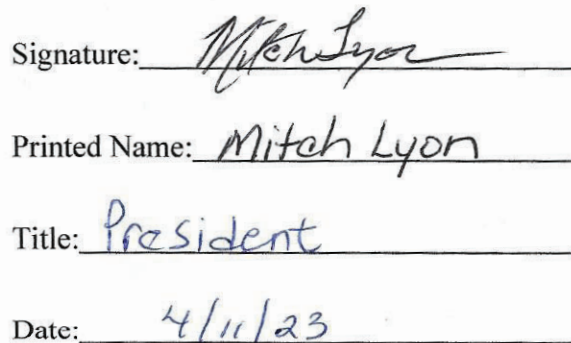 Signature: Mitch Lyon
Printed Name: Mitch Lyon
Title: President
Date: 4/11/23